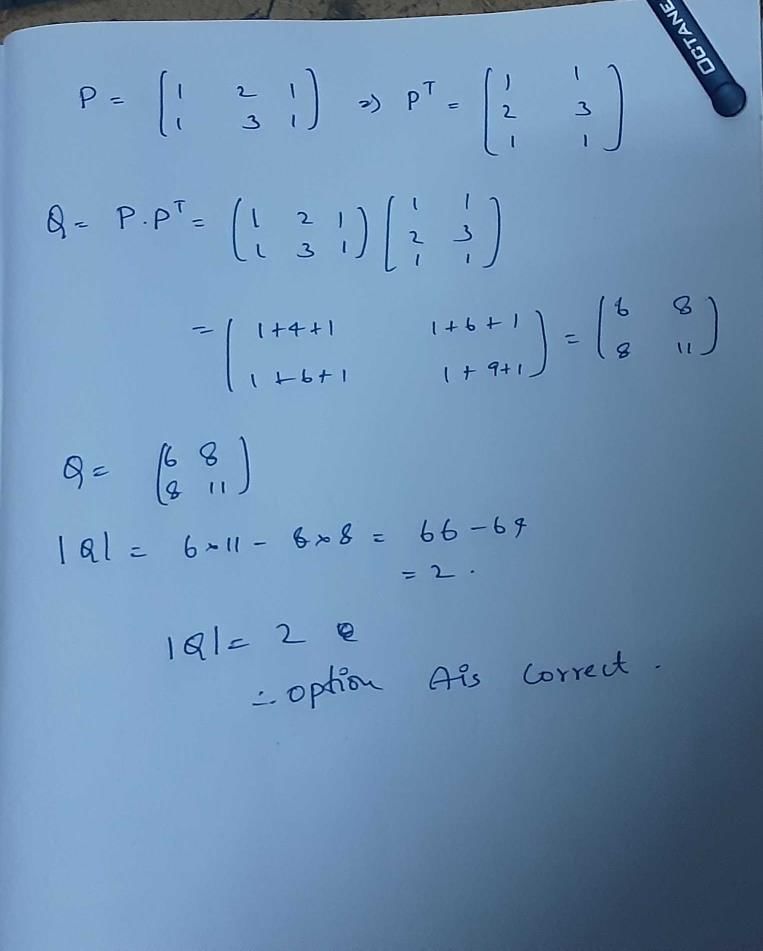 OCTANE
P = [1 2 1
1 3 1] ⇒ Pᵀ = [1 1
2 3
1 1]
Q = P.Pᵀ = (1 2 1
1 3 1) [1 1
2 3
1 1]
= [1+4+1 1+6+1
1+6+1 1+9+1] = (6 8
8 11)
Q = (6 8
8 11)
|Q| = 6×11 - 8×8 = 66-64
= 2.
|Q| = 2
∴ option A is correct.